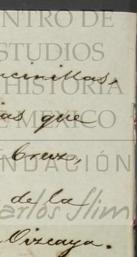 NTRO DE
STUDIOS
HISTORIA
MEXICO
ias que
NDACIÓN
Cruz,
de la
arlos Slim
Vizcaya.